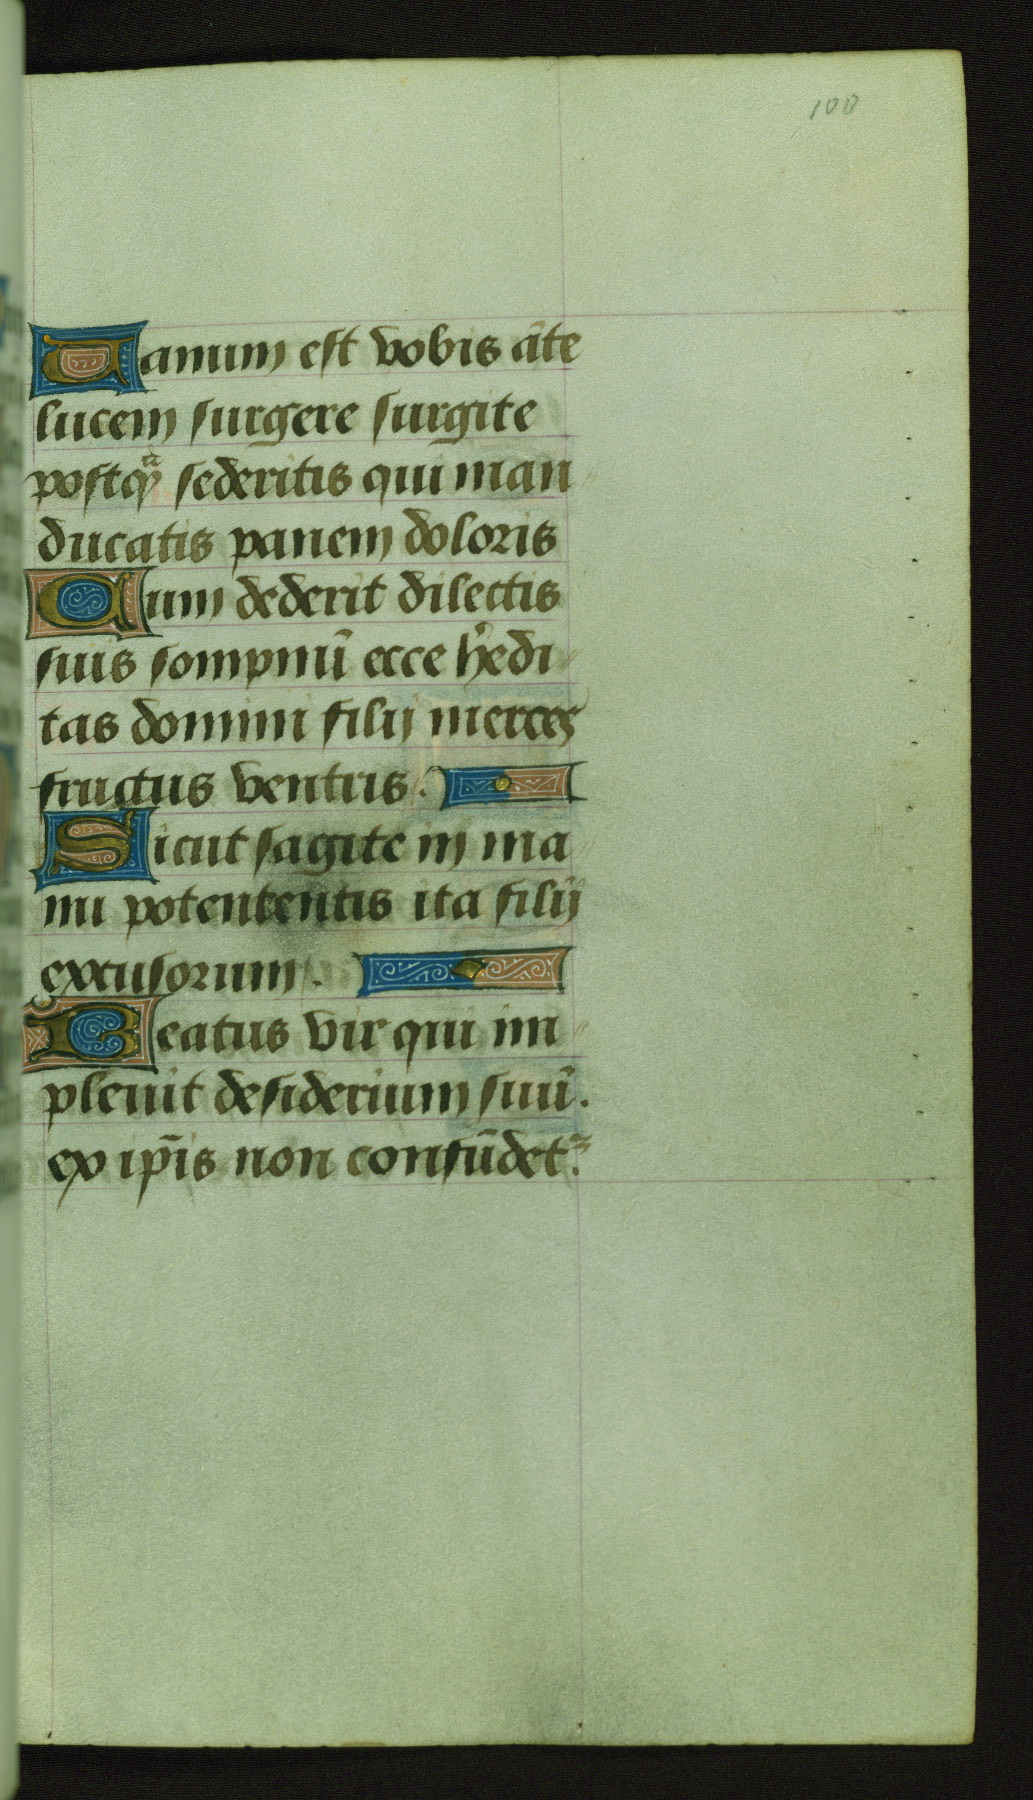 100
Vanum est vobis āte
lucem surgere surgite
postq̄ sederitis qui man
ducatis panem doloris
Cum dederit dilectis
suis sompnū ecce h̓edi
tas domini filij merces
fructus ventris.
Sicut sagite in ma
nu potententis ita filij
excusorum.
Beatus vir qui im
pleuit desiderium suū.
ex ip̄is non confūdet᷑.